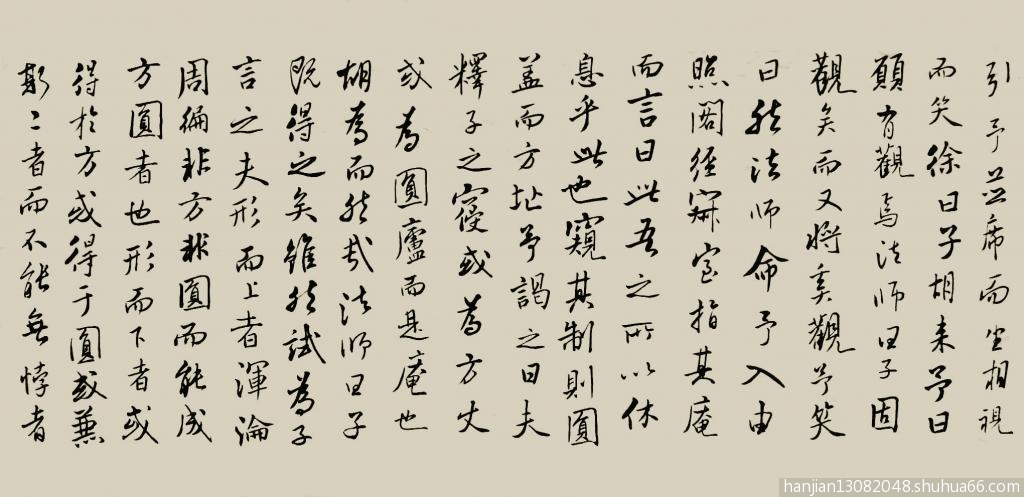 引予並席而坐相視
而笑徐曰子胡来予曰
願有觀焉法師曰子固
觀矣而又將奚觀予笑
曰然法師命予入由
照閣經寂室指其庵
而言曰此吾之所以休
息乎此也窺其制則圓
盖而方址予謁之曰夫
釋子之寝或為方丈
或為圓廬而是庵也
胡為而然哉法師曰子
既得之矣雖然試為子
言之夫形而上者渾淪
周徧非方非圓而能成
方圓者也形而下者或
得於方或得于圓或兼
斯二者而不能無悖者
hanjian13082048.shuhua66.com